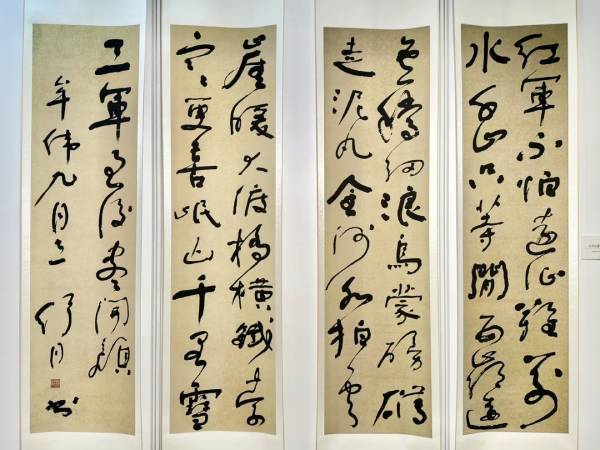 红軍不怕遠征難萬
水千山只等閒五嶺逶
迤騰細浪烏蒙磅礴
走泥丸金沙水拍雲
崖暖大渡橋橫鐵索
寒更喜岷山千里雪
三軍過後盡開顏
九月
書